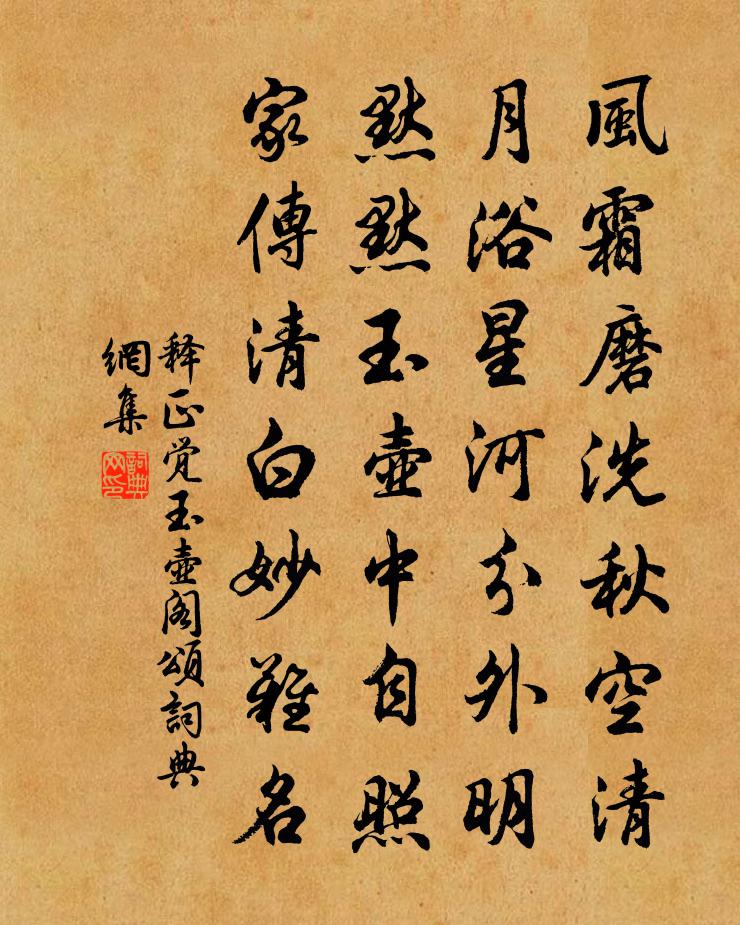 風霜磨洗秋空清
月浴星河分外明
默默玉壺中自照
家傳清白妙難名
释正觉玉壺阁頌詞典
網集
詞典
网印